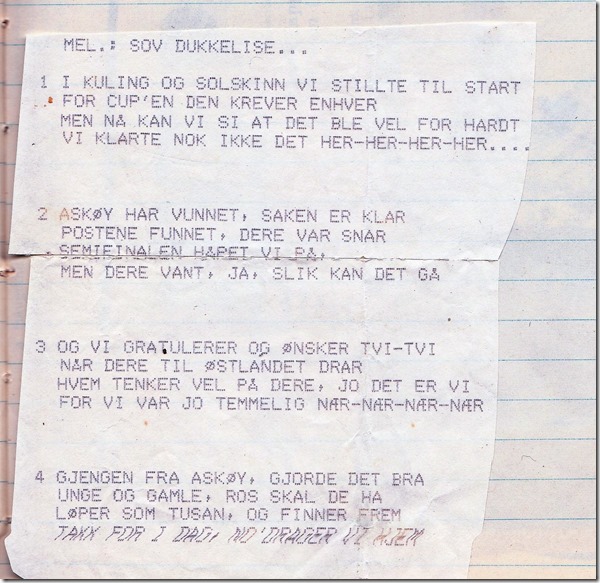 MEL.: SOV DUKKELISE...
1 I KULING OG SOLSKINN VI STILLTE TIL START
FOR CUP'EN DEN KREVER ENHVER
MEN NÅ KAN VI SI AT DET BLE VEL FOR HARDT
VI KLARTE NOK IKKE DET HER-HER-HER-HER....
2 ASKØY HAR VUNNET, SAKEN ER KLAR
POSTENE FUNNET, DERE VAR SNAR
SEMIFINALEN HÅPET VI PÅ,
MEN DERE VANT, JA, SLIK KAN DET GÅ
3 OG VI GRATULERER OG ØNSKER TVI-TVI
NÅR DERE TIL ØSTLANDET DRAR
HVEM TENKER VEL PÅ DERE, JO DET ER VI
FOR VI VAR JO TEMMELIG NÆR-NÆR-NÆR-NÆR
4 GJENGEN FRA ASKØY, GJORDE DET BRA
UNGE OG GAMLE, ROS SKAL DE HA
LØPER SOM TUSAN, OG FINNER FREM
TAKK FOR I DAG, NO'DRAGER VI HJEM